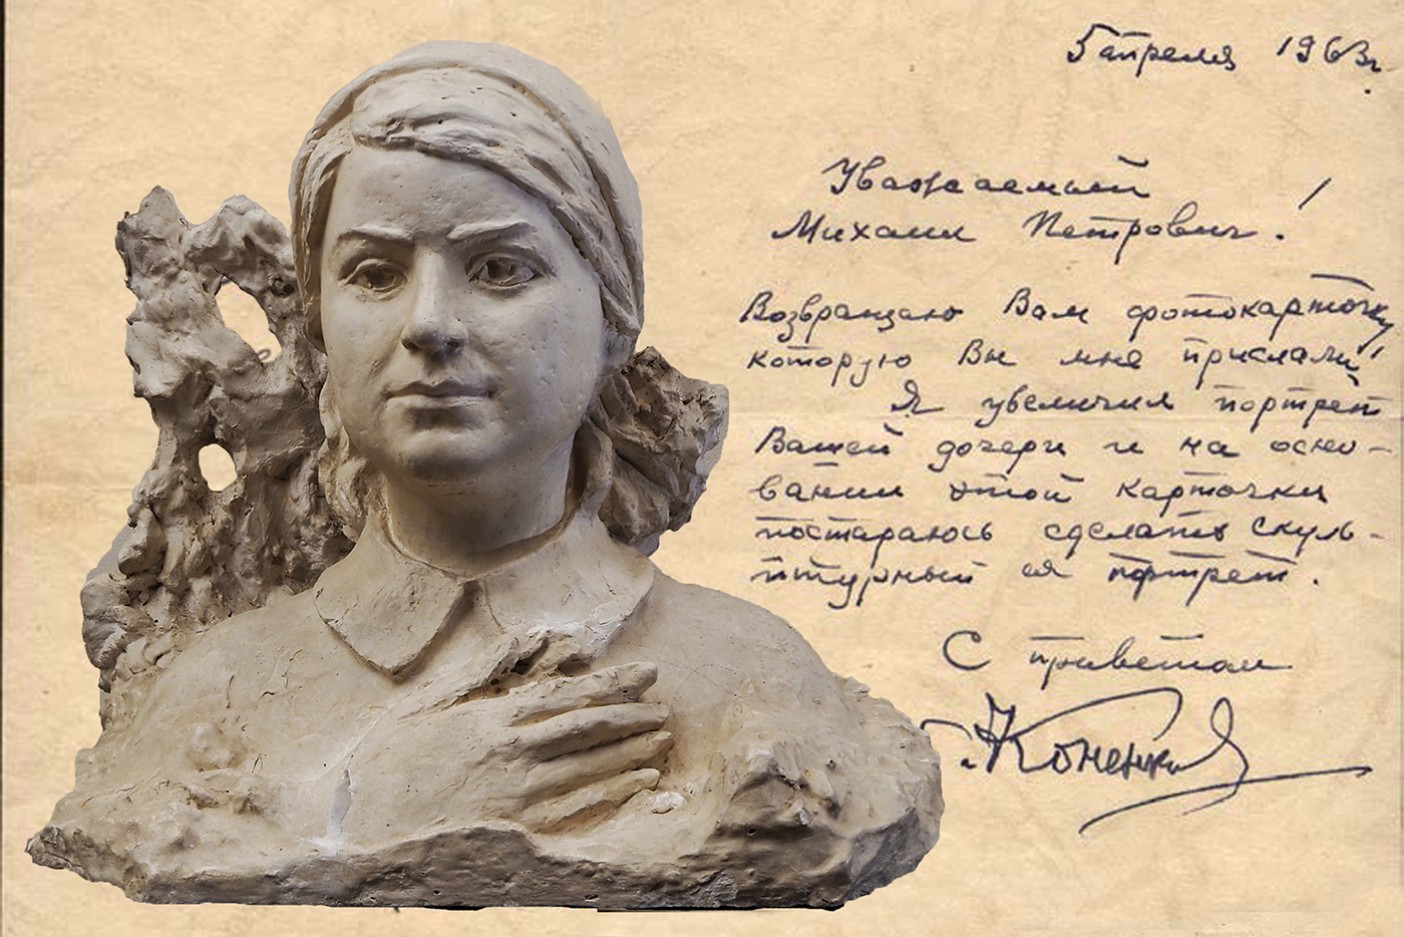 5 апреля 1963г.
Уважаемый
Михаил Петрович!
Возвращаю Вам фотокарточку,
которую Вы мне прислали!
Я увеличил портрет
Вашей дочери и на осно-
вании этой карточки
постараюсь сделать скуль-
птурный ея портрет.
С приветом
С. Коненков